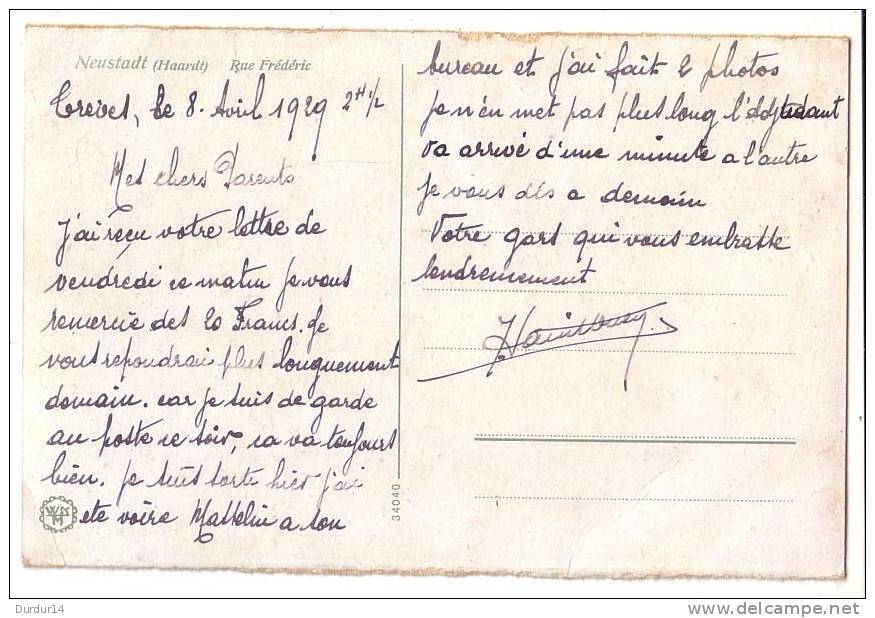 Neustadt (Haardt) Rue Frédéric
Treves, le 8. Avril 1929 2H 1/2
Mes chers Parents
J'ai reçu votre lettre de
vendredi ce matin je vous
remercie des 20 Francs. Je
vous repondrai plus longuement
domain. car je suis de garde
au poste ce soir, ca va toujours
bien. je suis sorte hier j'ai
ete voire Masselin a son
bureau et j'ai fait 2 photos
je n'en met pas plus long l'adjudant
va arrivé d'une minute a l'autre
je vous dis a demain
Votre gars qui vous embrasse
tendremement
34040
WK
M
Durdur14
www.delcampe.net